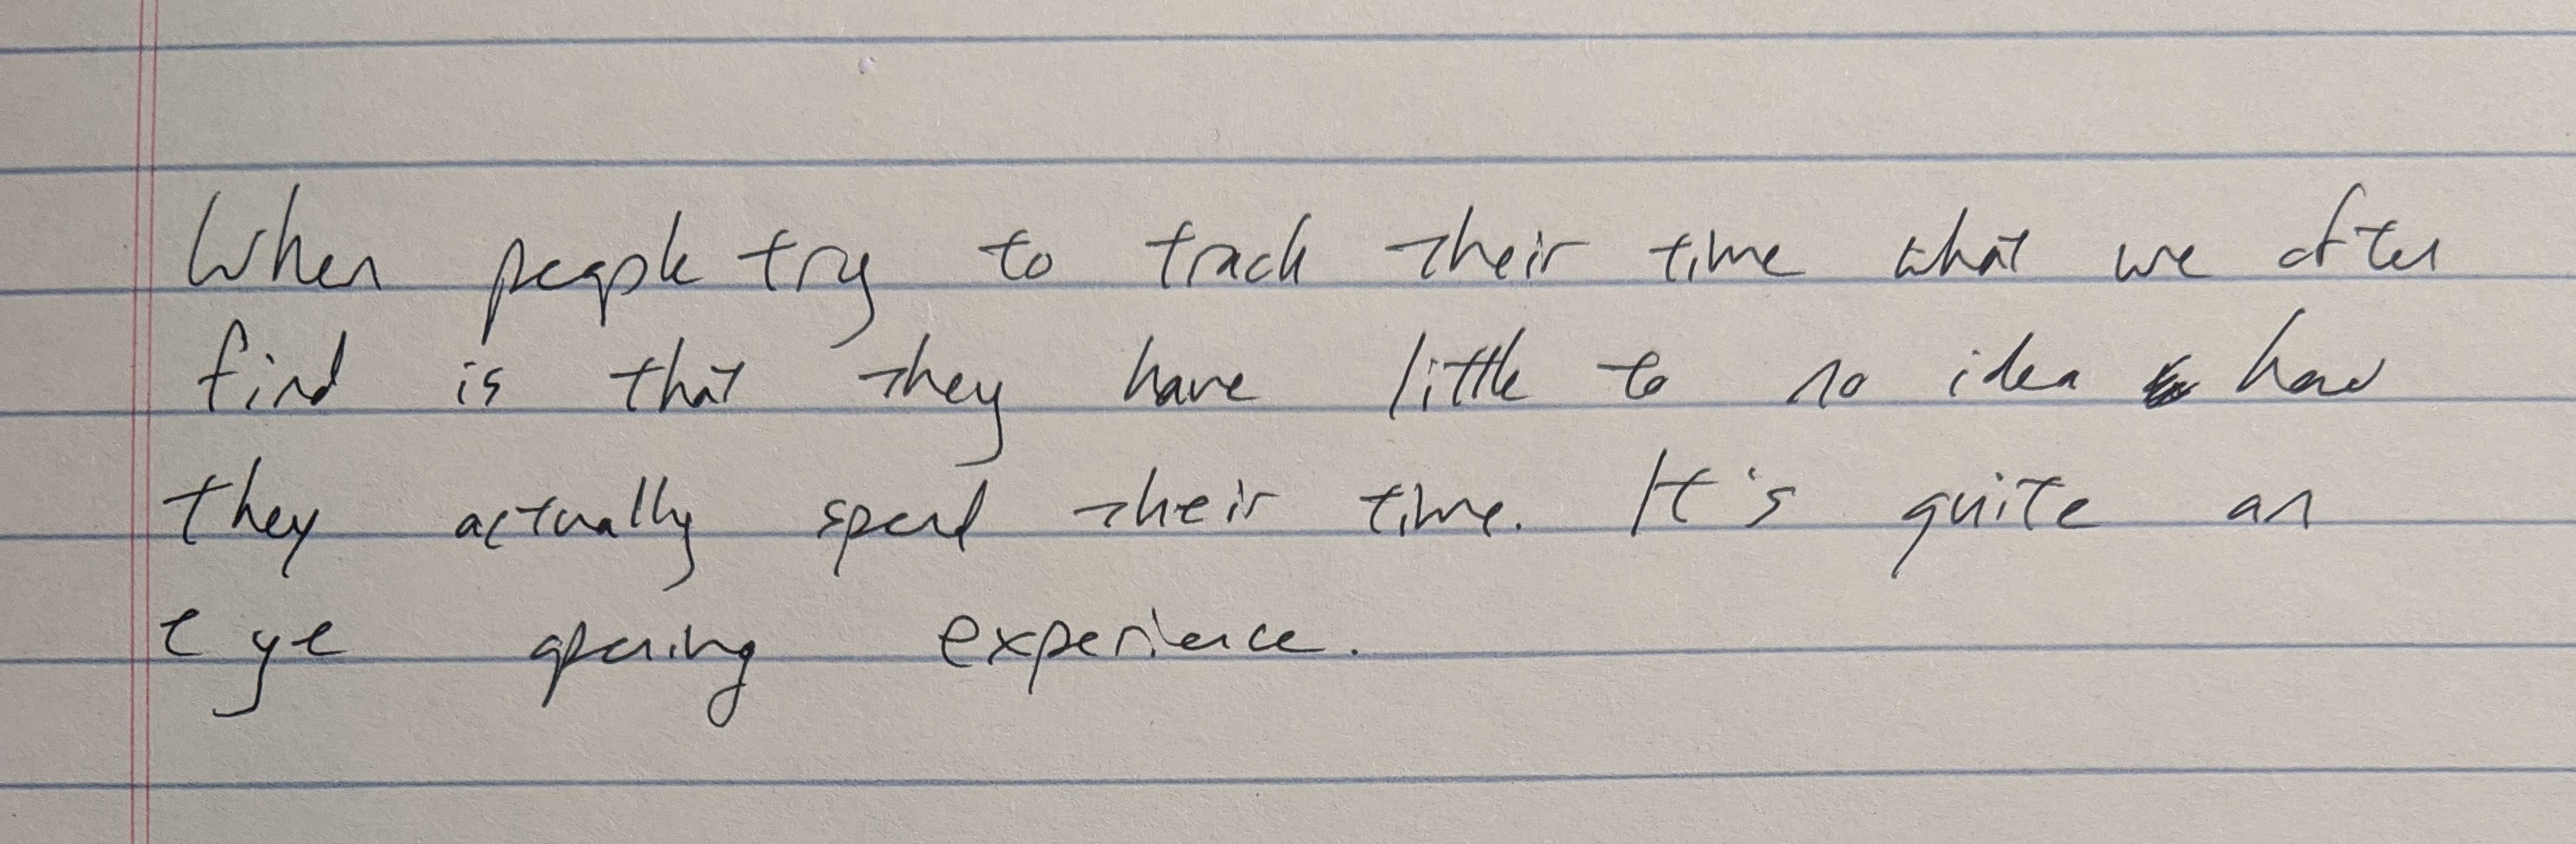 When people try to track their time what we often
find is that they have little to no idea how
they actually spend their time. It's quite an
eye opening experience.